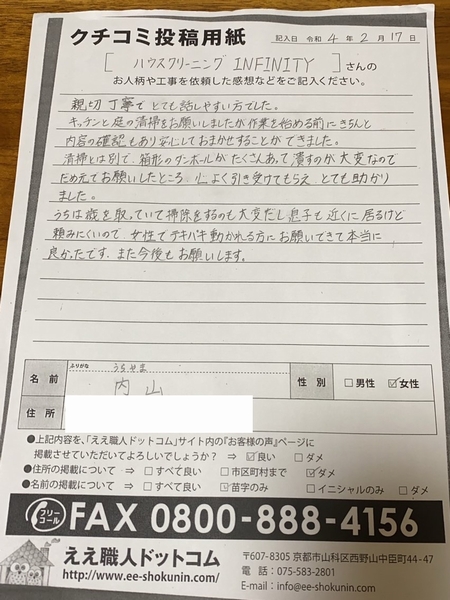 クチコミ投稿用紙 記入日 令和 4 年 2 月 17 日
[ ハウスクリーニング INFINITY ] さんの
お人柄や工事を依頼した感想などをご記入ください。
親切丁寧で とても話しやすい方でした。
キッチンと庭の清掃をお願いしましたが作業を始める前にきちんと
内容の確認もあり安心しておまかせすることができました。
清掃とは別で、箱形のダンボールがたくさんあって潰すのが大変なので
ためえてお願いしたところ 心よく引き受けてもらえ とても助かり
ました。
うちは歳を取っていて掃除をするのも大変だし息子も近くに居るけど
頼みにくいので 女性でテキパキ動かれる方にお願いできて本当に
良かったです。また今後もお願いします。
ふりがな うちやま
名前 内山 性別 □男性 ☑女性
住所
●上記内容を、「ええ職人ドットコム」サイト内の『お客様の声』ページに
掲載させていただいてよろしいでしょうか? ⇒ ☑良い □ダメ
●住所の掲載について ⇒ □すべて良い □市区町村まで ☑ダメ
●名前の掲載について ⇒ □すべて良い ☑苗字のみ □イニシャルのみ □ダメ
フリーコール FAX 0800-888-4156
ええ職人ドットコム
http://www.ee-shokunin.com/
〒607-8305 京都市山科区西野山中臣町44-47
電話:075-583-2801
E-mail:info@ee-shokunin.com